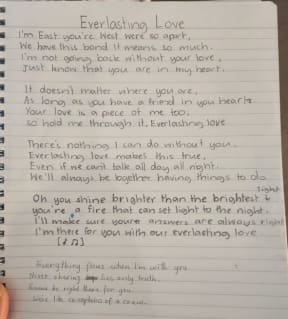 Everlasting Love
I'm East you're West were so apart,
We have this bond it means so much.
I'm not going back without your love,
Just know that you are in my heart.
It doesn't matter where you are,
As long as you have a friend in you heart
Your love is a piece of me too,
so hold me through it, Everlasting love
There's nothing I can do without you.
Everlasting love makes this true,
Even if we can't talk all day all night.
We'll always be together having things to do
Oh you shine brighter than the brightest light
you're a fire that can set light to the night.
I'll make sure youre answers are always right
I'm there for you with our everlasting love
[♪♫]
Everything fines when I'm with you
Never sharing lies only truth.
be right there for you
like